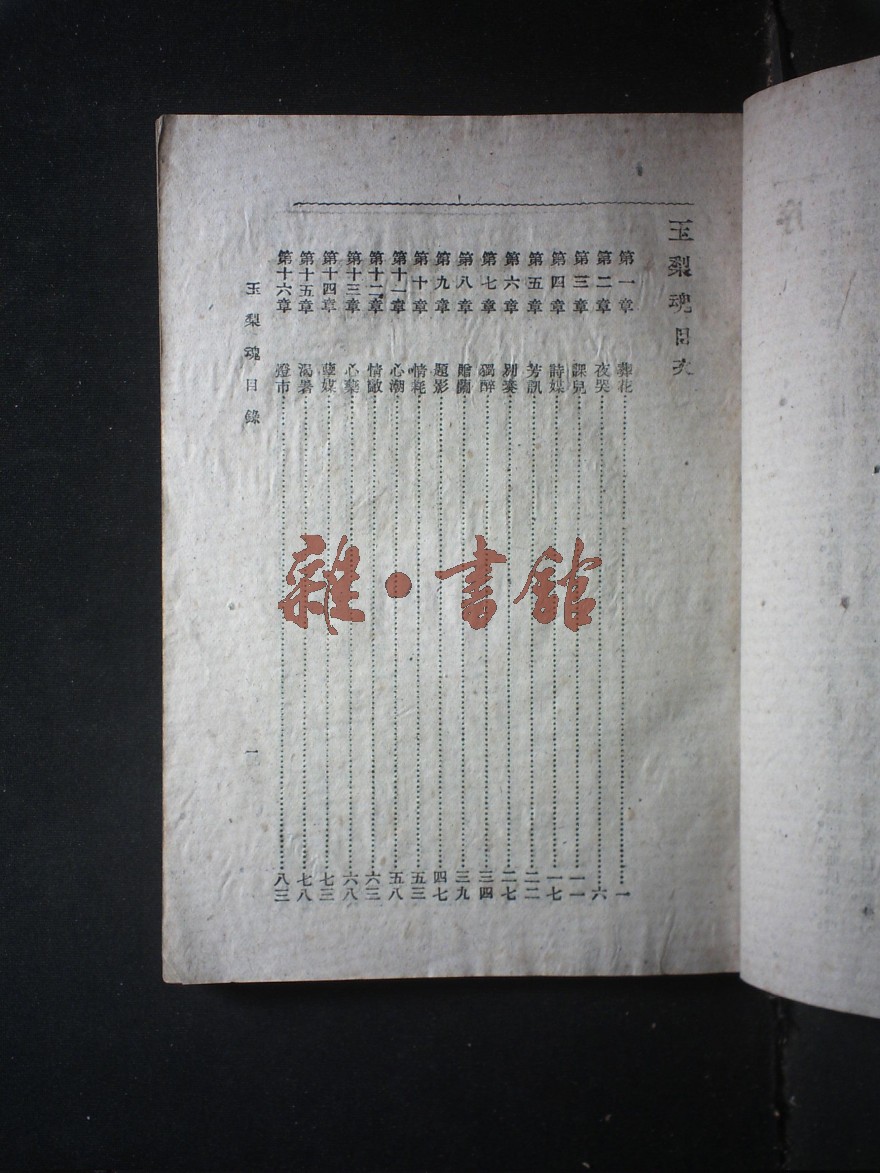 玉梨魂目次
第一章 葬花 一
第二章 夜哭 六
第三章 課兒 一一
第四章 詩媒 一七
第五章 芳訊 二二
第六章 別秦 二七
第七章 獨醉 三四
第八章 贈蘭 三九
第九章 題影 四七
第十章 情耗 五三
第十一章 心潮 五八
第十二章 情敵 六三
第十三章 心藥 六八
第十四章 孽媒 七三
第十五章 渴暑 七八
第十六章 燈市 八三
玉梨魂目錄
一
序
雜·書館